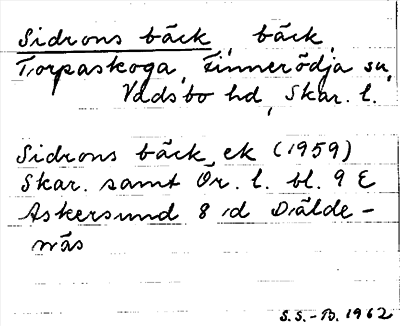 Sidrons bäck, bäck,
Torpaskoga, Finnerödja sn,
Vadsbo hd, Skar. l.
Sidrons bäck, ek (1959)
Skar. samt Ör. l. bl. 9 E
Askersund 8 id Djälde-
näs
S.S.-B. 1962